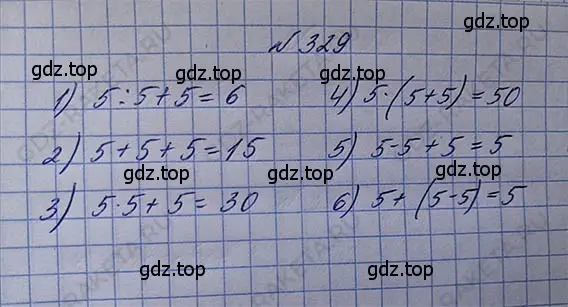 N 329
gdz.top gdz.top gdz.top
1) 5:5+5=6 4) 5·(5+5)=50
gdz.top gdz.top
2) 5+5+5=15 5) 5-5+5=5
gdz.top gdz.top gdz.top
3) 5·5+5=30 6) 5+(5-5)=5
gdz.top gdz.top